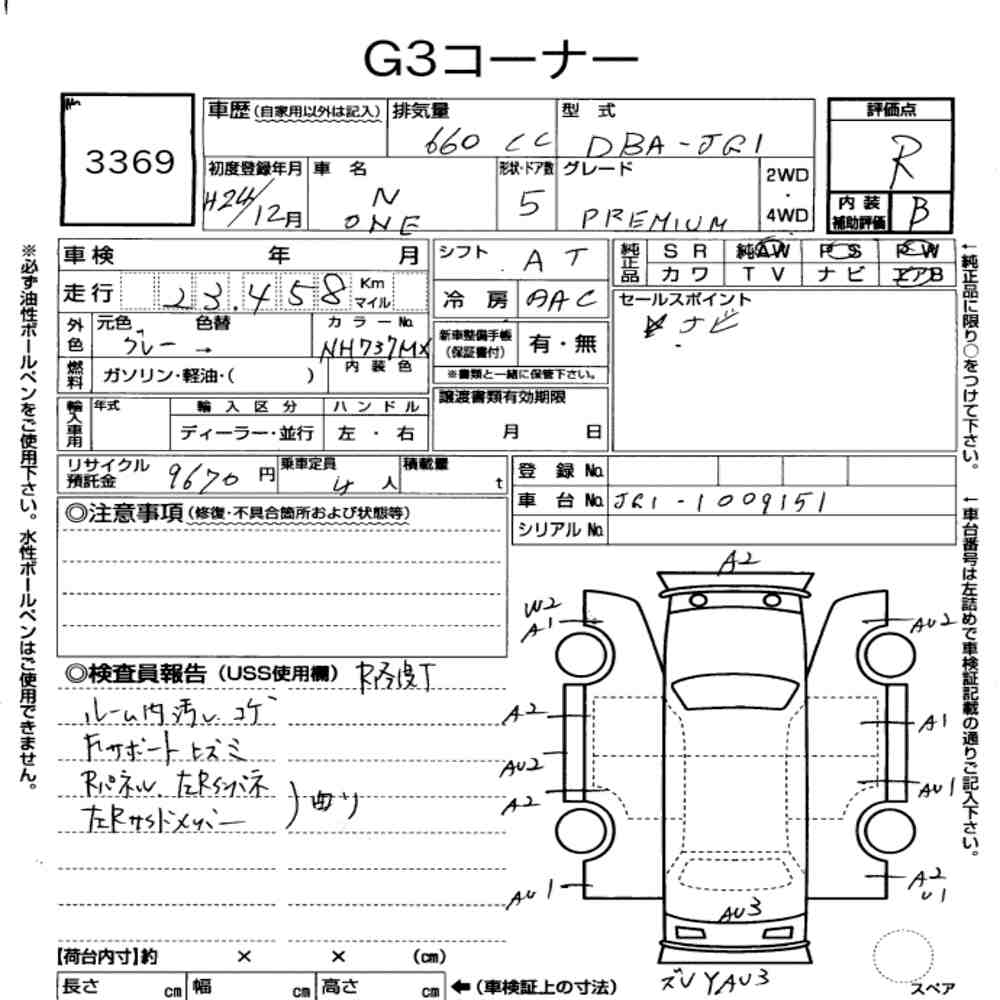 G3コーナー
3369
車歴(自家用以外は記入) 排気量 660 CC 型式 DBA-JG1
評価点 R
初度登録年月 H24/12月 車名 N ONE 形状・ドア数 5 グレード PREMIUM 2WD・4WD
内装補助評価 B
車検 年 月
走行 23.458 Km マイル
シフト AT
冷房 AAC
純正品 SR 純AW PS PW
カワ TV ナビ エアB
セールスポイント
ナビ
外色 元色 グレー → 色替 カラーNo. NH737MX
燃料 ガソリン・軽油・( ) 内装色
新車整備手帳(保証書付) 有・無
※書類と一緒に保管下さい。
譲渡書類有効期限 月 日
輸入車用 年式 輸入区分 ハンドル
ディーラー・並行 左・右
リサイクル預託金 9670円 乗車定員 4人 積載量 t
登録No.
車台No. JG1-1009151
シリアルNo.
◎注意事項(修復・不具合箇所および状態等)
◎検査員報告(USS使用欄)
ルーム内汚レ コゲ
Fサポートヒズミ
Rパネル.左Rインパネ
左Rサイドメンバー
)曲り
A2
W2
A1
AU2
A2
A1
AU2
AU1
A2
AU1
A2
U1
AU3
ズレYAU3
スペア
【荷台内寸】約 × × (cm)
長さ cm 幅 cm 高さ cm ←(車検証上の寸法)
※必ず油性ボールペンをご使用下さい。水性ボールペンはご使用できません。
←純正品に限り○をつけて下さい。
←車台番号は左詰めで車検証記載の通りご記入下さい。